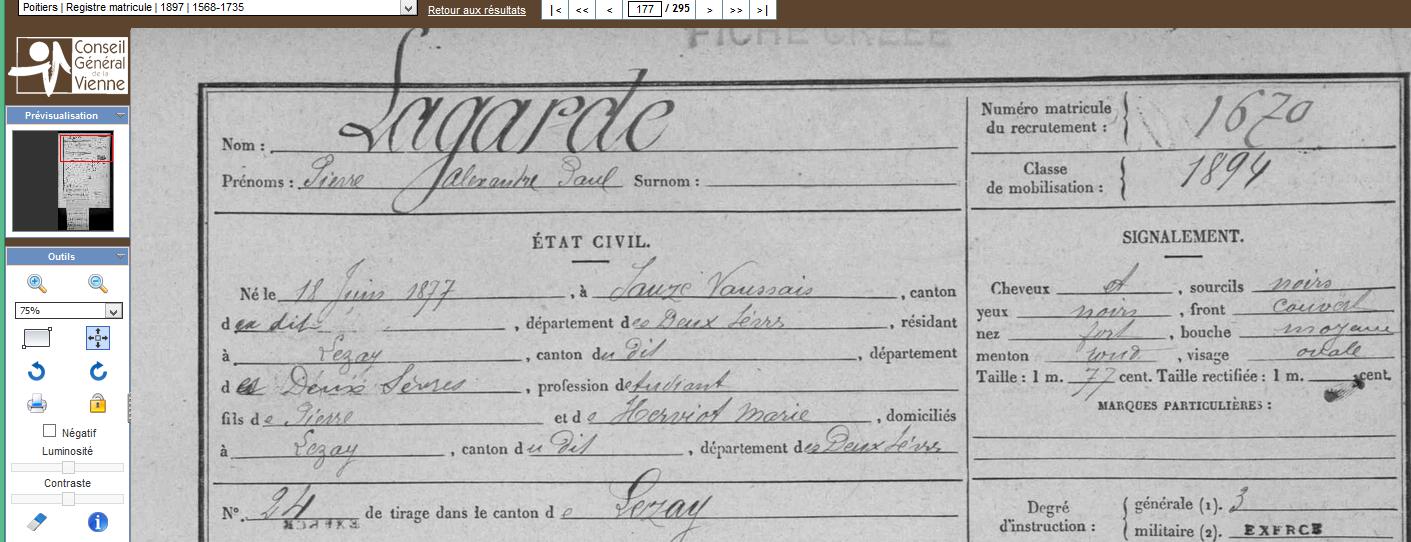 Poitiers | Registre matricule | 1897 | 1568-1735
Retour aux résultats
|< << < 177 / 295 > >> >|
Conseil
Général
de la
Vienne
Prévisualisation
Outils
75%
Négatif
Luminosité
Contraste
FICHE CRÉÉE
Nom : Lagarde
Prénoms : Pierre Alexandre Paul Surnom :
Numéro matricule
du recrutement : 1670
Classe
de mobilisation : 1894
ÉTAT CIVIL.
Né le 18 Juin 1877, à Sauzé Vaussais, canton
d dit, département des Deux Sèvres, résidant
à Lezay, canton du dit, département
des Deux Sèvres, profession d'étudiant
fils de Pierre et de Herviot Marie, domiciliés
à Lezay, canton du dit, département des Deux Sèvres
N°. 24 de tirage dans le canton de Lezay
SIGNALEMENT.
Cheveux et, sourcils noirs
yeux noirs, front couvert
nez fort, bouche moyenne
menton rond, visage ovale
Taille : 1 m. 77 cent. Taille rectifiée : 1 m. cent.
MARQUES PARTICULIÈRES :
Degré
d'instruction :
générale (1). 3
militaire (2). EXERCÉ